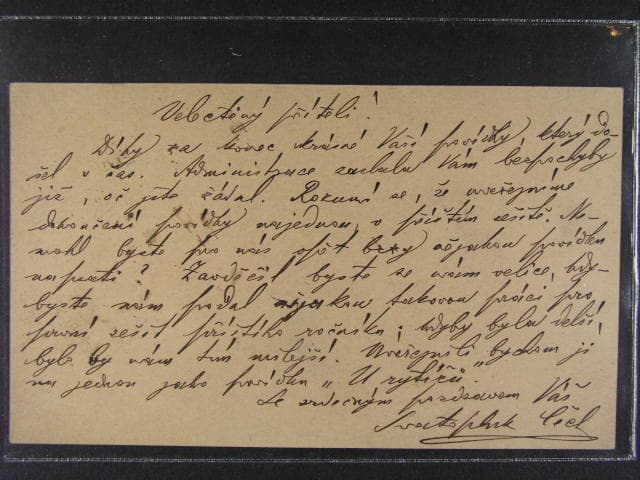 Velectěný příteli!
Díky za konec krásné Vaší povídky, který do-
šel v čas. Administrace zaslala Vám bezpochyby
již, oč jste žádal. Rozumí se, že uveřejníme
dokončení povídky najednou, v příštím sešitě. Ne-
mohl byste pro nás opět brzy nějakou povídku
napsati? Zavděčil byste se nám velice, kdy-
byste nám podal nějakou takovou práci pro
první sešit příštího ročníku; kdyby byla delší,
bylo by nám tím milejší. Uveřejnili bychom ji
na jednou jako povídku „U rytířů."
Se srdečným pozdravem Váš
Svatopluk Čech